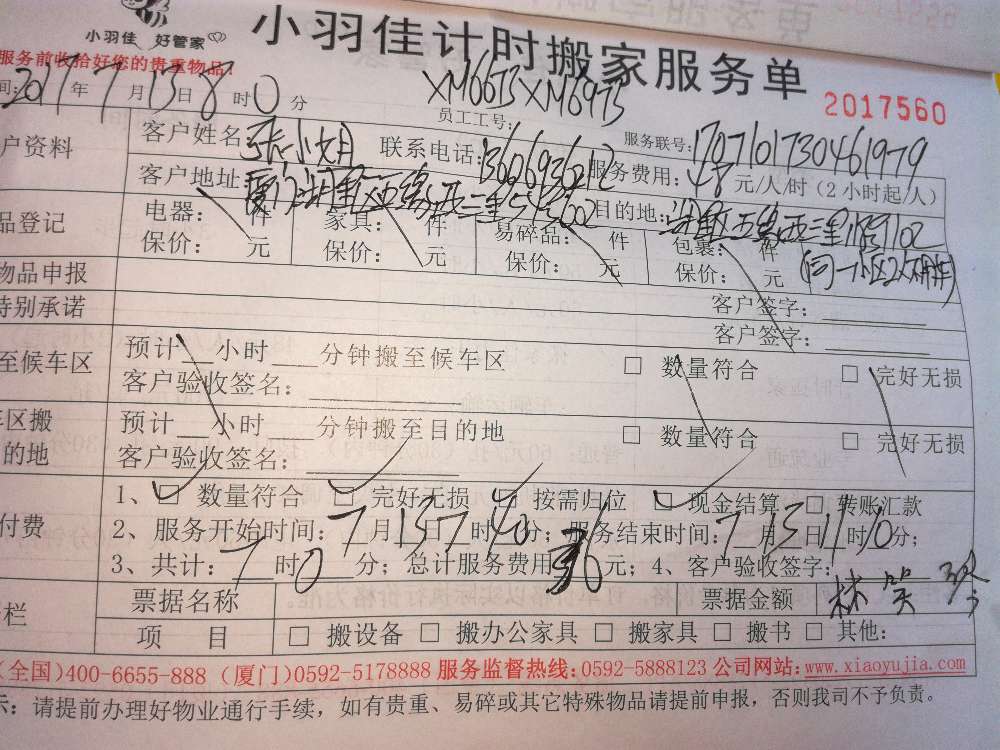 小羽佳 好管家
小羽佳计时搬家服务单
服务前收拾好您的贵重物品!
2017560
间: 2017年7月13日8时0分
员工工号: XM66TB XM69TB
服务联号: 1707101730461979
户资料
客户姓名: 张小姐 联系电话: 13606936212 服务费用: 48元/人/时 (2小时起/人)
客户地址: 厦门 目的地:
品登记
电器: 件 家具: 件 易碎品: 件 包裹: 件
保价: 元 保价: 元 保价: 元 保价: 元
物品申报 客户签字:
特别承诺 客户签字:
至候车区
预计 小时 分钟搬至候车区 □ 数量符合 □ 完好无损
客户验收签名:
车区搬
的地
预计 小时 分钟搬至目的地 □ 数量符合 □ 完好无损
客户验收签名:
付费
1、□ 数量符合 □ 完好无损 □ 按需归位 □ 现金结算 □ 转账汇款
2、服务开始时间: 7月13日7时40分; 服务结束时间: 7月13日11时10分;
3、共计: 7时0分; 总计服务费用 元; 4、客户验收签字:
栏
票据名称 票据金额
项 目 □ 搬设备 □ 搬办公家具 □ 搬家具 □ 搬书 □ 其他:
(全国)400-6655-888 (厦门)0592-5178888 服务监督热线: 0592-5888123 公司网站: www.xiaoyujia.com
示: 请提前办理好物业通行手续, 如有贵重、易碎或其它特殊物品请提前申报, 否则我司不予负责。